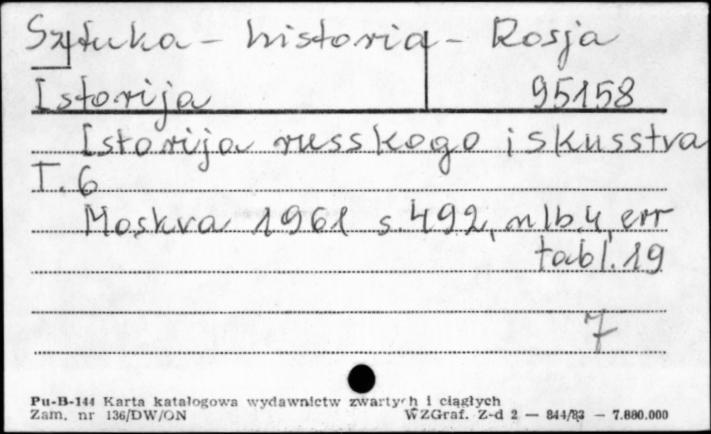 Sztuka - historia - Rosja
Istorija 95158
Istorija russkogo iskusstva
T. 6
Moskva 1961 s. 492, nlb. 4, err
tabl. 19
7
Pu-B-144 Karta katalogowa wydawnictw zwartych i ciągłych
Zam. nr 136/DW/ON WZGraf. Z-d 2 — 844/83 — 7.880.000